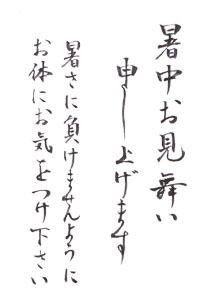 暑中お見舞い
申し上げます
暑さに負けませんように
お体にお気をつけ下さい